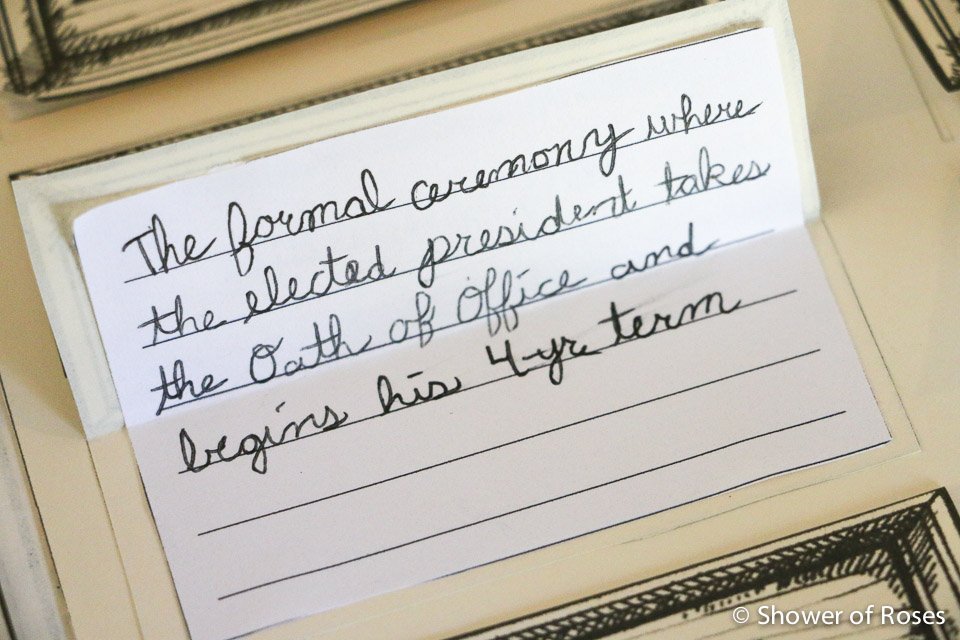 The formal ceremony where
the elected president takes
the Oath of Office and
begins his 4-yr term
© Shower of Roses